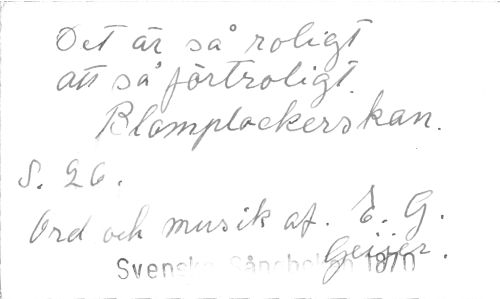 Det är så roligt
att så förtroligt.
Blomplockerskan.
S. 26.
Ord och musik af. E. G.
Geijer.
Svenska Sångboken 1870